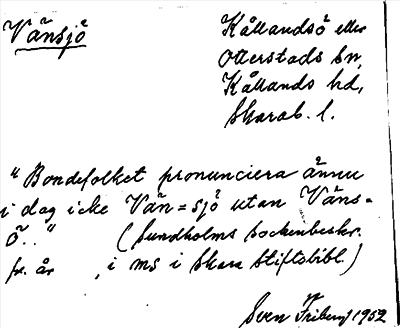 Vänsjö
Kållandsö eller
Otterstads sn,
Kållands hd,
Skarab. l.
"Bondefolket pronunciera ännu
i dag icke Vän=sjö utan Väns=
ö.." (Sundholms sockenbeskr.
fr. år , i ms i Skara Stiftsbibl.)
Sven Friberg 1952